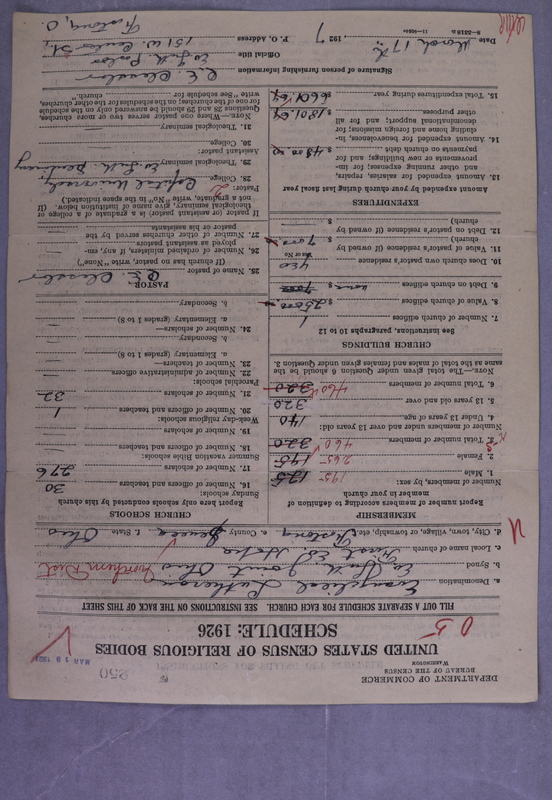 DEPARTMENT OF COMMERCE
BUREAU OF THE CENSUS
WASHINGTON
250
MAR 19 1927
UNITED STATES CENSUS OF RELIGIOUS BODIES
SCHEDULE: 1926
05
FILL OUT A SEPARATE SCHEDULE FOR EACH CHURCH. SEE INSTRUCTIONS ON THE BACK OF THIS SHEET
a. Denomination Evangelical Lutheran
b. Synod Ev. Luth. Joint Ohio Northern Dist
c. Local name of church
d. City, town, village, or township, etc. Fostoria e. County Seneca f. State Ohio
MEMBERSHIP
Report number of members according to definition of
member in your church
Number of members, by sex:
1. Male 125 195
2. Female 195 265
3. Total number of members 320 460
Number of members under and over 13 years old:
4. Under 13 years of age 140
5. 13 years old and over 320
6. Total number of members 320 460
NOTE.—The total given under Question 6 should be the
same as the total of males and females given under Question 3.
CHURCH BUILDINGS
See instructions, paragraphs 10 to 12
7. Number of church edifices 1
8. Value of church edifices $ 25000
9. Debt on church edifices $ none
10. Does church own pastor's residence? yes
Yes or No
11. Value of pastor's residence (if owned by
church) $ 7000
12. Debt on pastor's residence (if owned by
church) $
EXPENDITURES
Amount expended by your church during last fiscal year
13. Amount expended for salaries, repairs,
and other running expenses; for im-
provements or new buildings; and for
payments on church debt $ 4800.00
14. Amount expended for benevolences, in-
cluding home and foreign missions; for
denominational support; and for all
other purposes $ 1801.69
15. Total expenditures during year $ 6601.69
CHURCH SCHOOLS
Report here only schools conducted by this church
Sunday schools:
16. Number of officers and teachers 30
17. Number of scholars 276
Summer vacation Bible schools:
18. Number of officers and teachers
19. Number of scholars
Week-day religious schools:
20. Number of officers and teachers 1
21. Number of scholars 32
Parochial schools:
22. Number of administrative officers
23. Number of teachers—
a. Elementary (grades 1 to 8)
b. Secondary
24. Number of scholars—
a. Elementary (grades 1 to 8)
b. Secondary
PASTOR
25. Name of pastor
(If church has no pastor, write "None")
26. Number of ordained ministers, if any, em-
ployed as assistant pastors
27. Number of other churches served by the
pastor or his assistants
If pastor (or assistant pastor) is a graduate of a college or
theological seminary, give name of institution below. (If
not a graduate, write "No" in the space indicated.)
Pastor:
28. College Capital University
29. Theological seminary Ev. Luth. Seminary
Assistant pastor:
30. College
31. Theological seminary
NOTE.—Where one pastor serves two or more churches,
Questions 28 and 29 should be answered only on the schedule
for one of the churches; on the schedules for the other churches,
write "See Schedule for church."
Signature of person furnishing information
Official title Ev. Luth. Pastor
P. O. Address 151 W. Center St.,
Fostoria, O
Date March 17th, 1927
8-5518 a 11-9051